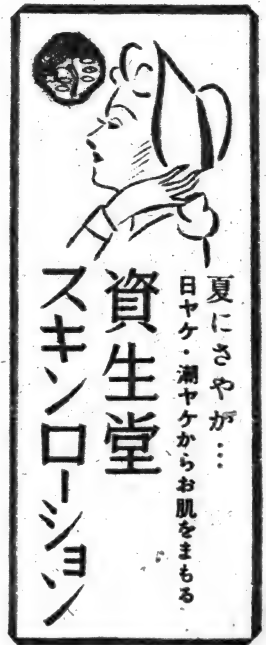 夏にさやか…
日ヤケ・潮ヤケからお肌をまもる
資生堂
スキンローション